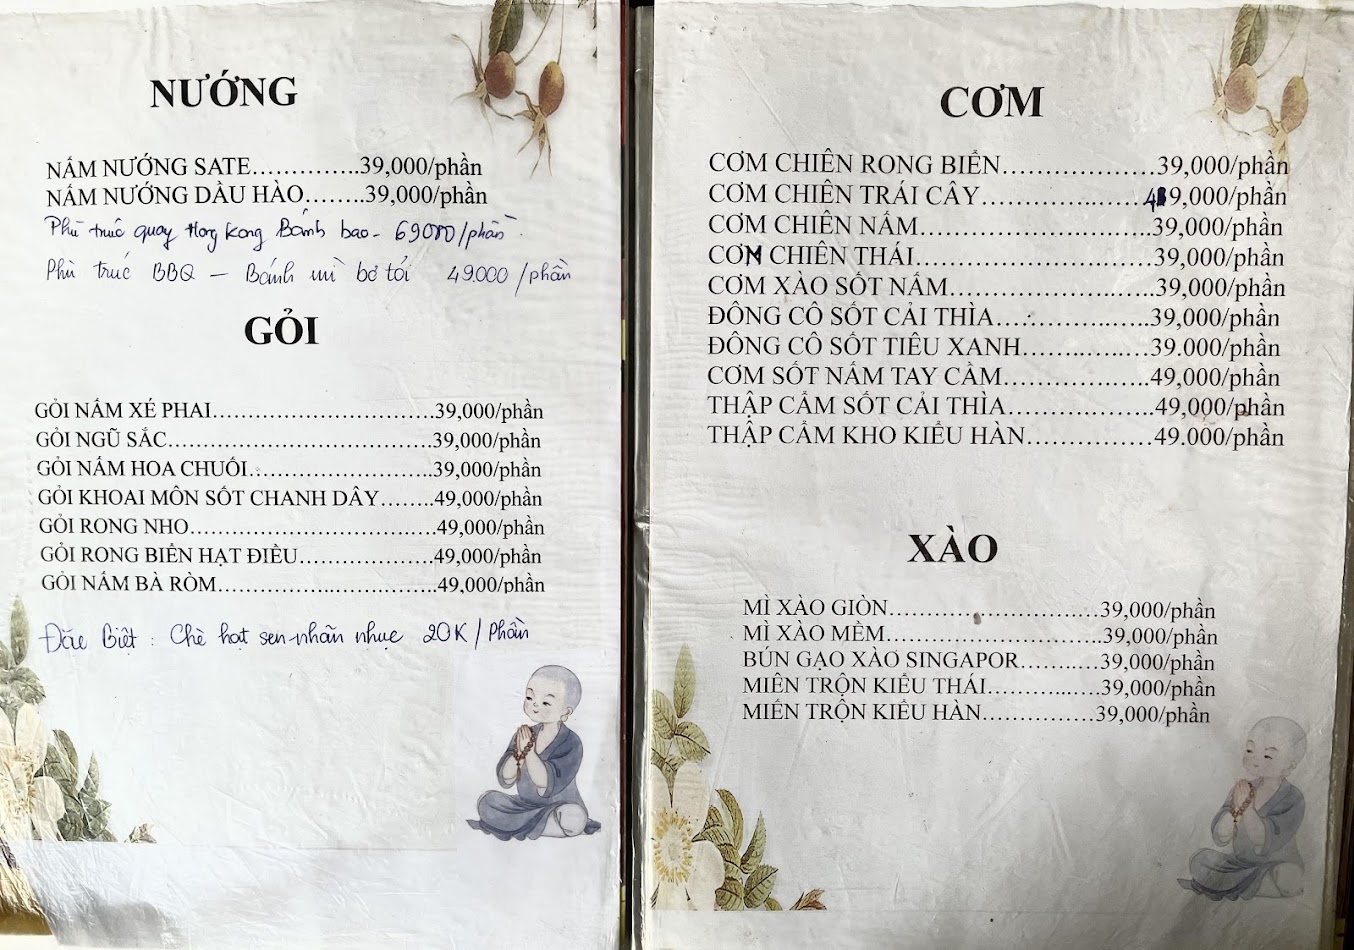 NƯỚNG
NẤM NƯỚNG SATE………….39,000/phần
NẤM NƯỚNG DẦU HÀO……..39,000/phần
Phù trúc quay Hong Kong Bánh bao - 69000/phần
Phù trúc BBQ – Bánh mì bơ tỏi 49.000/phần
GỎI
GỎI NẤM XÉ PHAI………………………….39,000/phần
GỎI NGŨ SẮC……………………………….39,000/phần
GỎI NẤM HOA CHUỐI…………………….39,000/phần
GỎI KHOAI MÔN SỐT CHANH DÂY……..49,000/phần
GỎI RONG NHO…………………………….49,000/phần
GỎI RONG BIỂN HẠT ĐIỀU……………….49,000/phần
GỎI NẤM BÀ RÒM…………..……………..49,000/phần
Đặc Biệt : Chè hạt sen-nhãn nhục 20K/Phần
CƠM
CƠM CHIÊN RONG BIỂN………………39,000/phần
CƠM CHIÊN TRÁI CÂY………………49,000/phần
CƠM CHIÊN NẤM……………………..39,000/phần
CƠM CHIÊN THÁI……………………..39,000/phần
CƠM XÀO SỐT NẤM…………………..39,000/phần
ĐÔNG CÔ SỐT CẢI THÌA……………..39,000/phần
ĐÔNG CÔ SỐT TIÊU XANH……..…..…39.000/phần
CƠM SỐT NẤM TAY CẦM……………..49,000/phần
THẬP CẨM SỐT CẢI THÌA……………..49,000/phần
THẬP CẨM KHO KIỂU HÀN……………49.000/phần
XÀO
MÌ XÀO GIÒN……………………………39,000/phần
MÌ XÀO MỀM……………………………39,000/phần
BÚN GẠO XÀO SINGAPOR……..….…39,000/phần
MIẾN TRỘN KIỂU THÁI………...….…39,000/phần
MIẾN TRỘN KIỂU HÀN………………39,000/phần